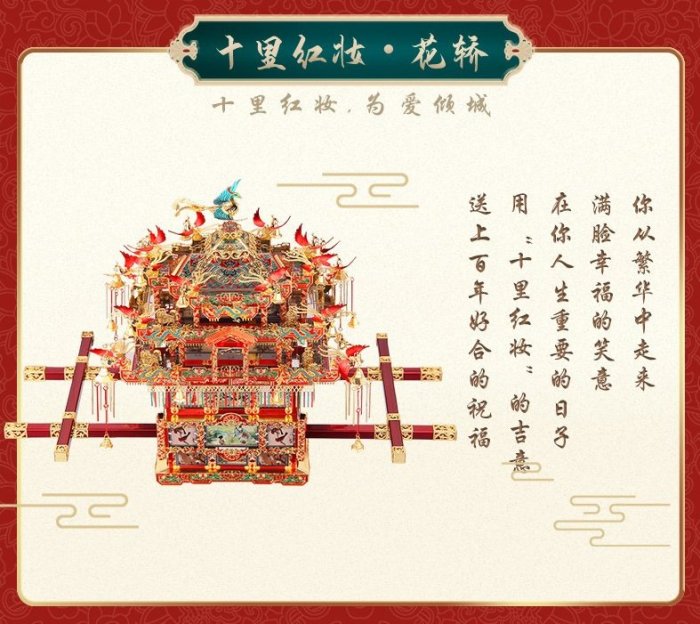 十里红妆·花轿
十里红妆.为爱倾城
你从繁华中走来
满脸幸福的笑意
在你人生重要的日子
用“十里红妆”的吉意
送上百年好合的祝福